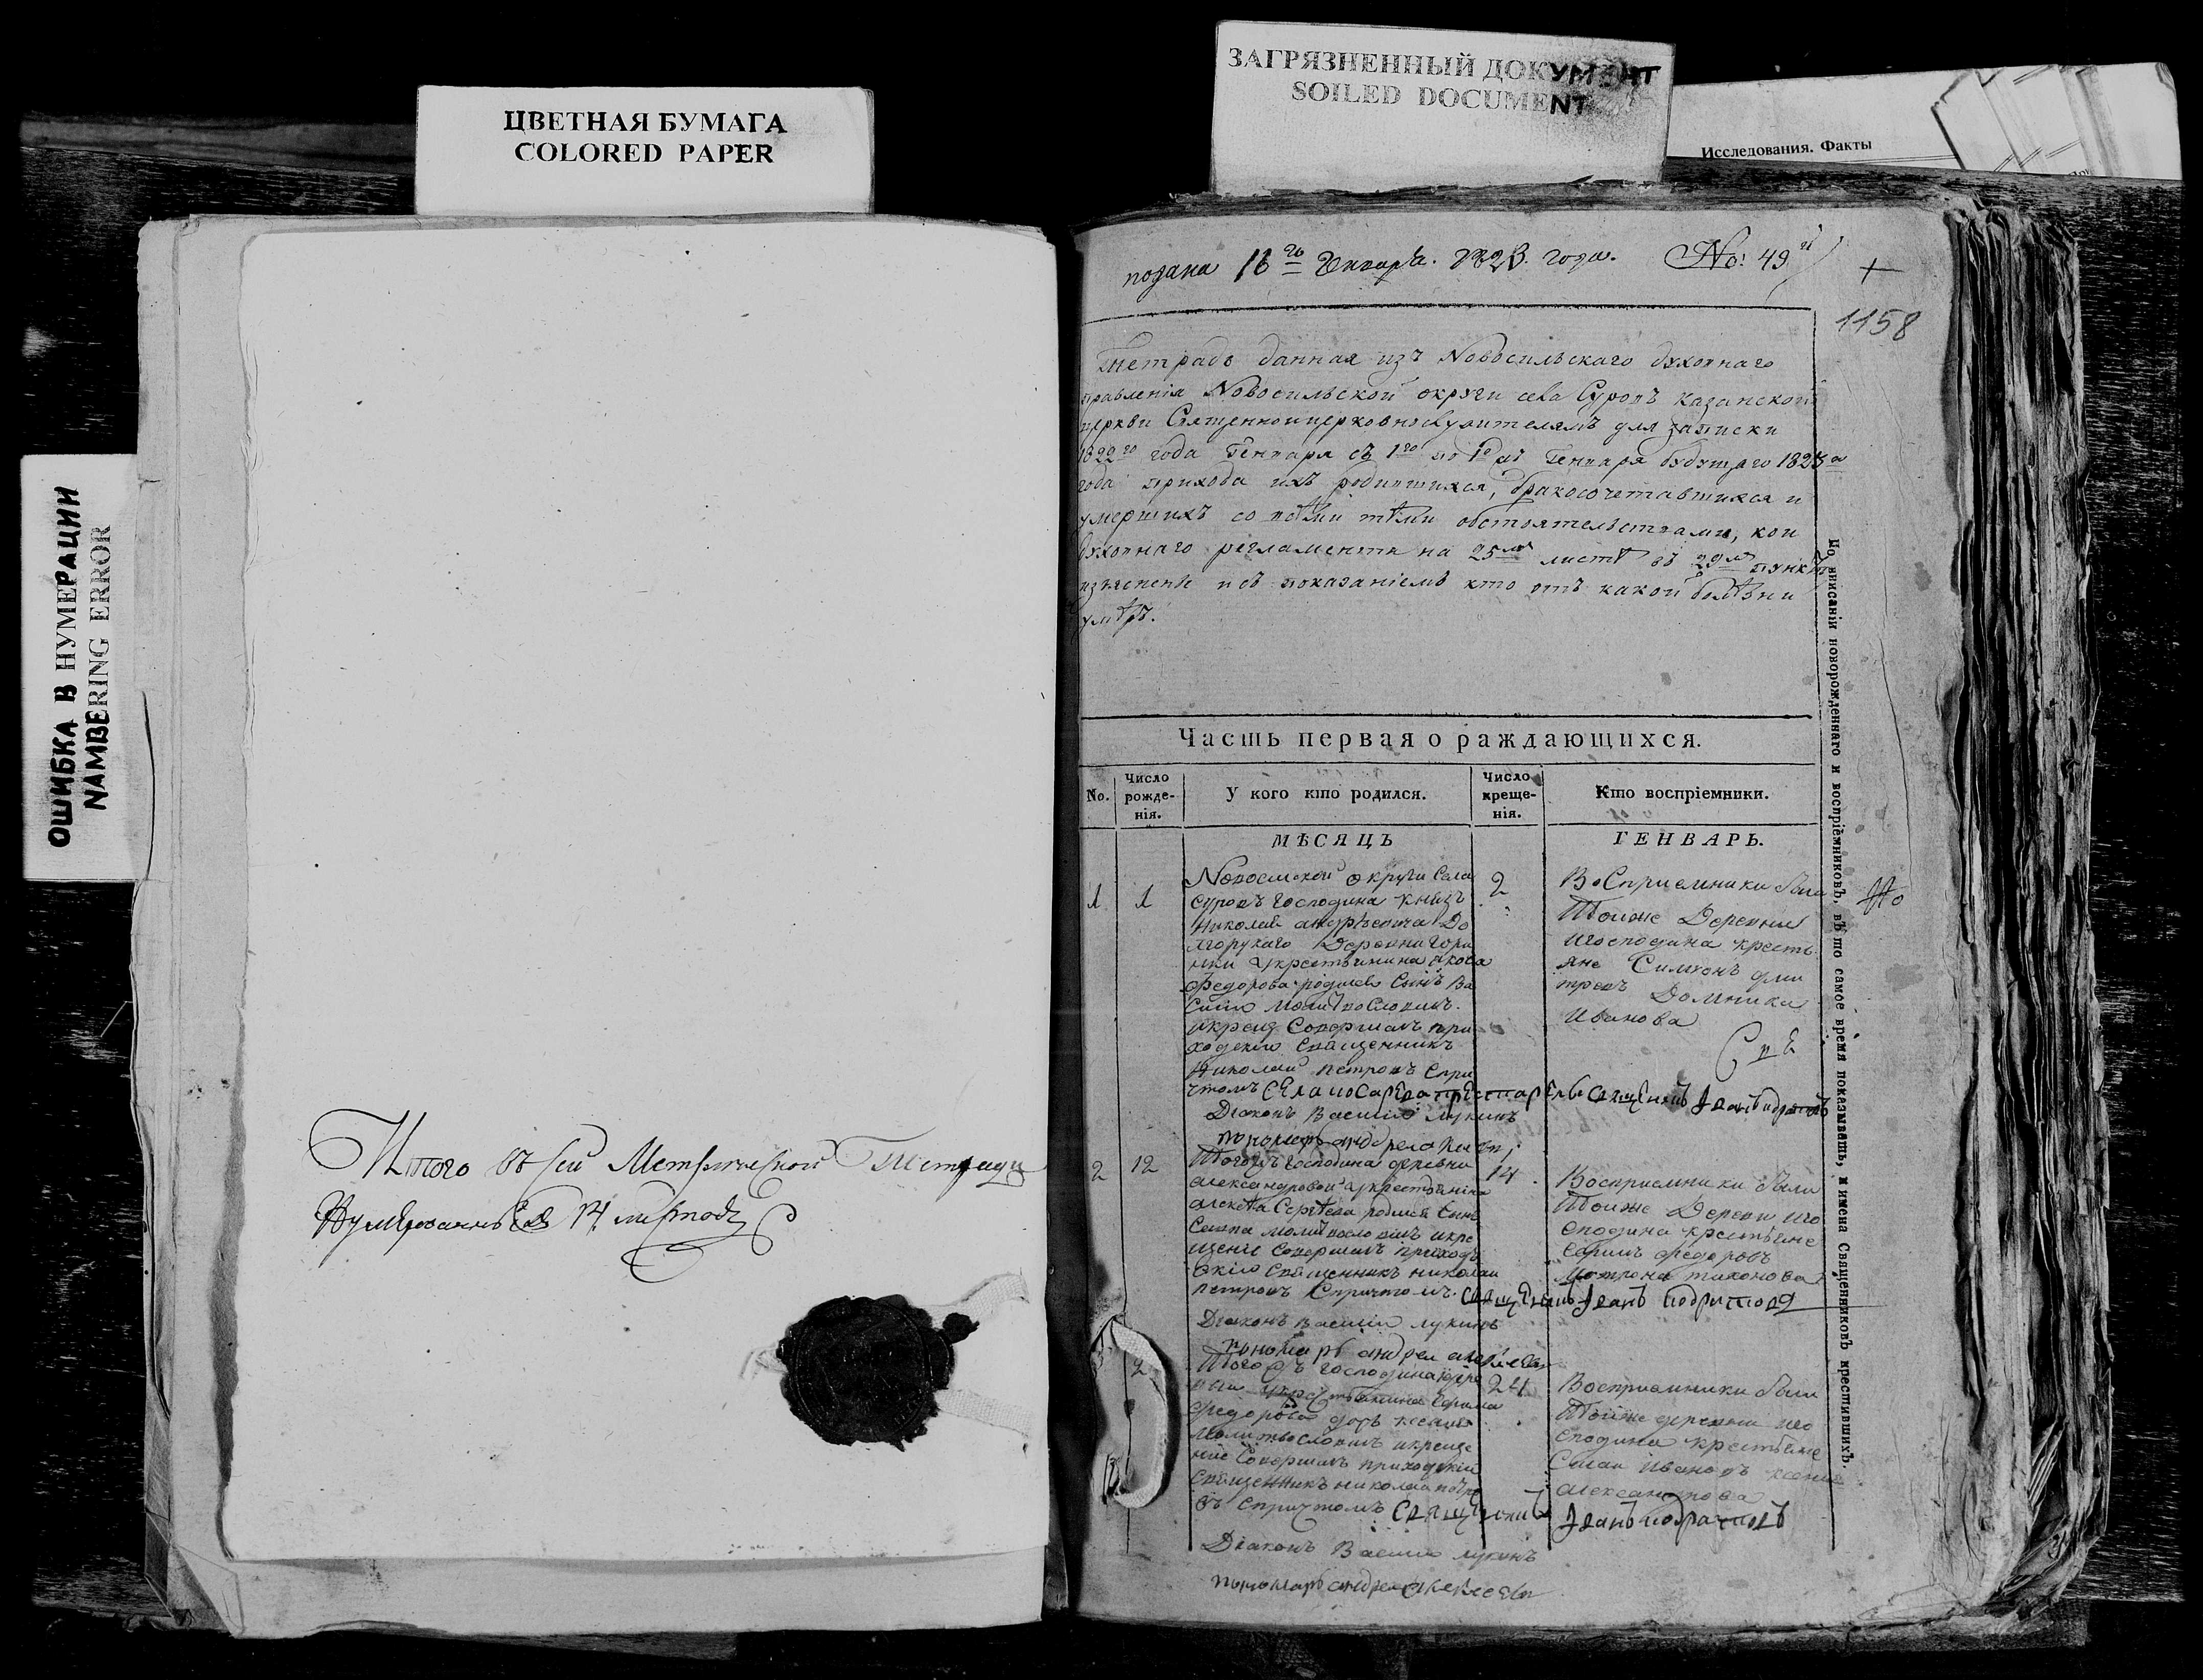 ЦВЕТНАЯ БУМАГА
COLORED PAPER
ЗАГРЯЗНЕННЫЙ ДОКУМЕНТ
SOILED DOCUMENT
Исследования. Факты
ОШИБКА В НУМЕРАЦИИ
NAMBERING ERROR
Итого въ сей Метрической тетради
Нумерованныхъ 14 листовъ
подана 16го Генваря 1823 года. No: 49й
1158
Тетрадь данная изъ Новосильскаго духовнаго
правленія Новосильской округи села Суровъ казанской
церкви Священноицерковнослужителямъ для записки
1822го года Генваря съ 1го по 1е Генваря будущаго 1823а
года прихода ихъ родившихся, бракосочетавшихся и
умершихъ со всѣми тѣми обстоятельствами, кои
духовнаго регламента на 25мъ листѣ въ 29мъ пунктѣ
изъяснены и съ показаніемъ кто отъ какой болѣзни
умѣръ.
Часть первая о раждающихся.
No.
Число рожде-нія.
У кого кто родился.
Число креще-нія.
Кто воспріемники.
МѢСЯЦЪ
ГЕНВАРЬ.
1
1
Новосилской округи Села
Суровъ господина князъ
Николая андрѣевича До
лгорукаго Деревни
укрестьянина якова
федорова родился Сынъ Ва
силій молитвословилъ
Совершалъ при
ходскій священникъ
Николай петровъ Спри
чтомъ
Діаконъ Василій лукинъ
пономарь андрей
2
Восприемники были
Тоиже Деревни
игосподина кресть
яне Симіонъ дми
тревъ Домника
Иванова
священникъ Іоаннъ
2
12
Тогожъ господина деревни
александровой укрестьянина
алексѣя Сергѣева родился Сынъ
молитвословилъ икре
щеніе Совершалъ приход
скій священникъ николай
петровъ Спричтомъ
Діаконъ Василій лукинъ
пономарь андрей алексѣевъ
14
Восприемники были
Тоиже Деревни иго
сподина крестьяне
федоровъ
Матрона тихонова
священникъ Іоаннъ
Тогожъ господина дере
вни укрестьянина
федорова дочь ксенія
молитвословилъ икреще
ніе Совершалъ приходскій
священникъ николай петро
въ Спричтомъ священникъ
Діаконъ Василій лукинъ
пономарь андрей алексѣевъ
24
Восприемники были
Тоиже деревни иго
сподина крестьяне
Ивановъ ксенія
александрова
Іоаннъ
По вписаніи новорожденнаго и воспріемниковъ, въ то самое время показывать, и имена Священниковъ крестившихъ.